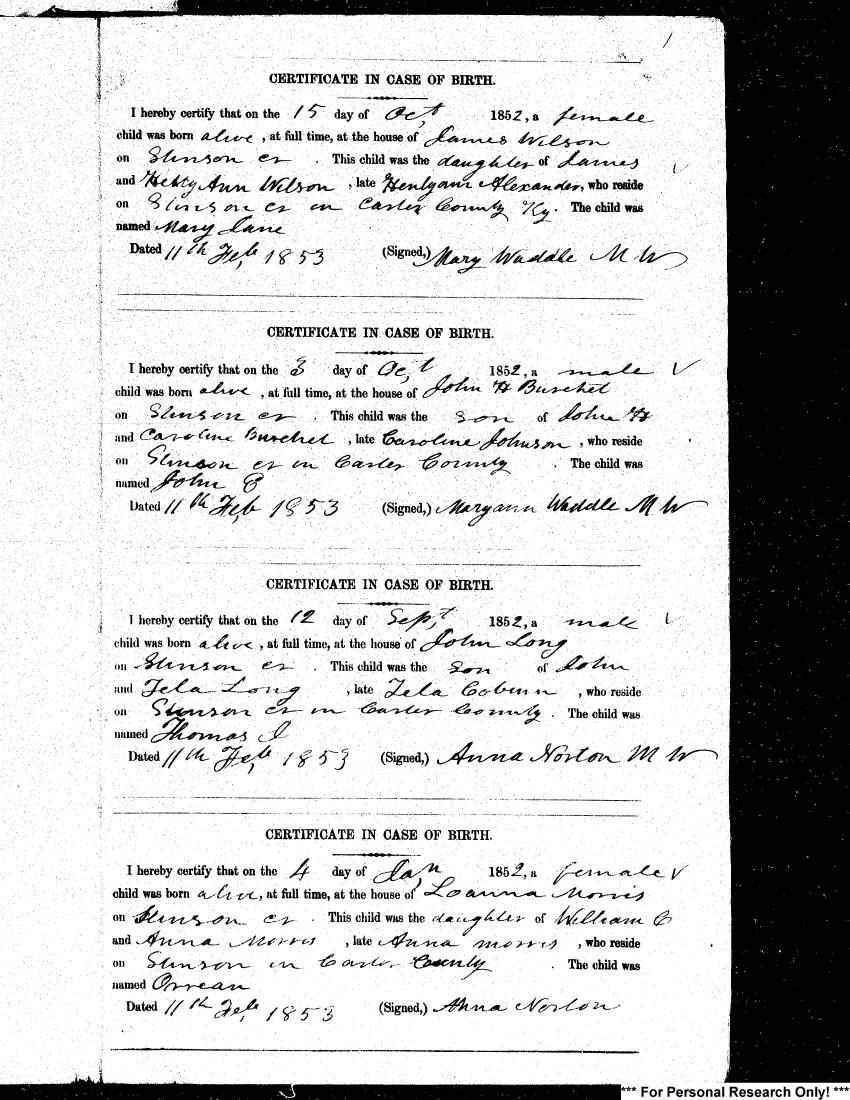 1
CERTIFICATE IN CASE OF BIRTH.
I hereby certify that on the 15 day of Oct, 1852, a female
child was born alive, at full time, at the house of James Wilson
on Stinson cr . This child was the daughter of James
and Hetty Ann Wilson , late Henlyann Alexander, who reside
on Stinson cr in Carter County Ky. The child was
named Mary Jane
Dated 11th Feb, 1853 (Signed,) Mary Waddle M W
CERTIFICATE IN CASE OF BIRTH.
I hereby certify that on the 3 day of Oct, 1852, a male
child was born alive , at full time, at the house of John H Burchet
on Stinson cr . This child was the son of John H
and Caroline Burchet , late Caroline Johnson , who reside
on Stinson cr in Carter County . The child was
named John C
Dated 11th Feb, 1853 (Signed,) Maryann Waddle M W
CERTIFICATE IN CASE OF BIRTH.
I hereby certify that on the 12 day of Sept, 1852, a male
child was born alive, at full time, at the house of John Long
on Stinson cr . This child was the Son of John
and Tela Long , late Tela Coburn , who reside
on Stinson cr in Carter County . The child was
named Thomas J
Dated 11th Feb, 1853 (Signed,) Anna Norton M W
CERTIFICATE IN CASE OF BIRTH.
I hereby certify that on the 4 day of Jan, 1852, a female
child was born alive, at full time, at the house of Loanna Morris
on Stinson cr . This child was the daughter of William C
and Anna Morris , late Anna morris , who reside
on Stinson in Carter County . The child was
named Orrean
Dated 11th Feb, 1853 (Signed,) Anna Norton
*** For Personal Research Only! ***